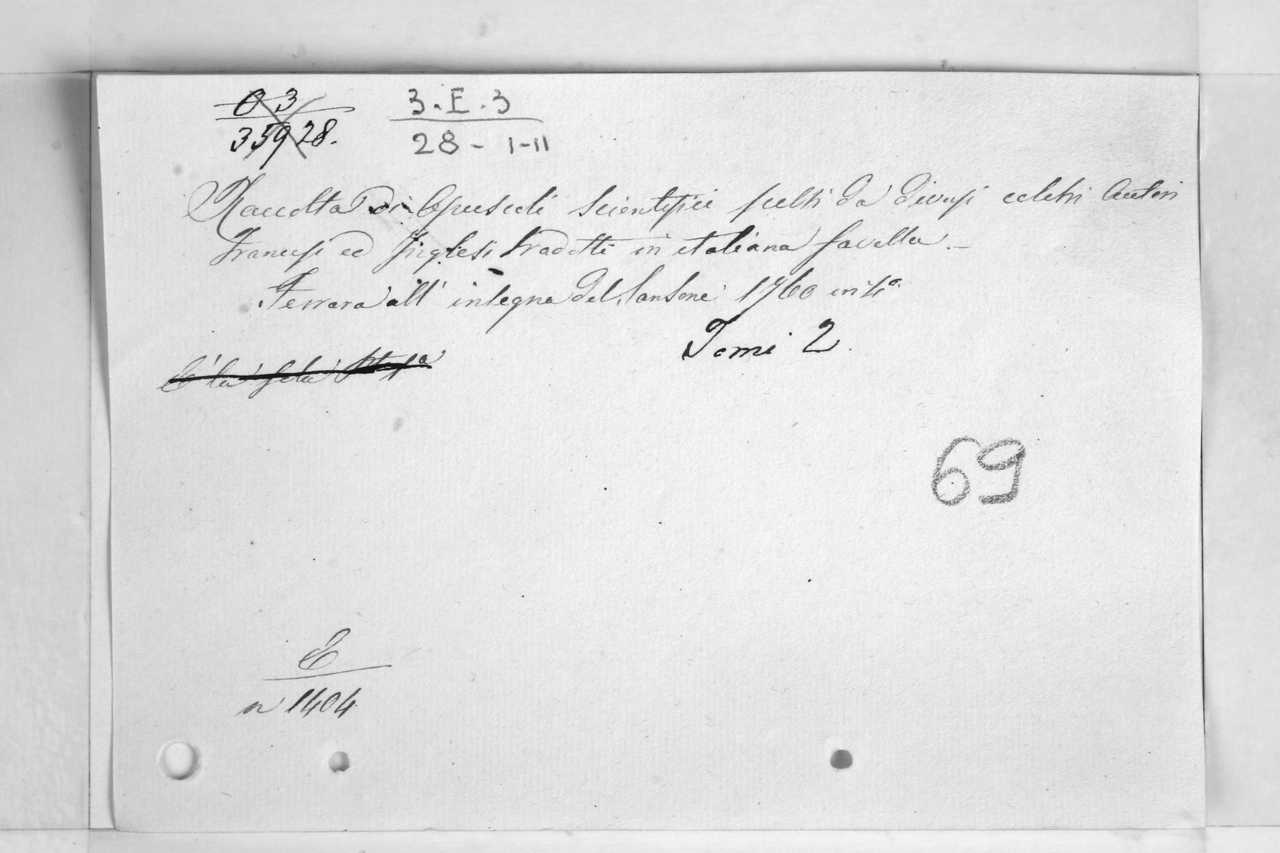 O 3 3.E.3
35928. 28 - I-II
Raccolta di Opuscoli scientifici scelti da diversi celebri Autori
Francesi ed Inglesi tradotti in italiana favella. -
Ferrara all' insegna del Sansone 1760 in 4º
Tomi 2.
C'è la
69
E
n 1404